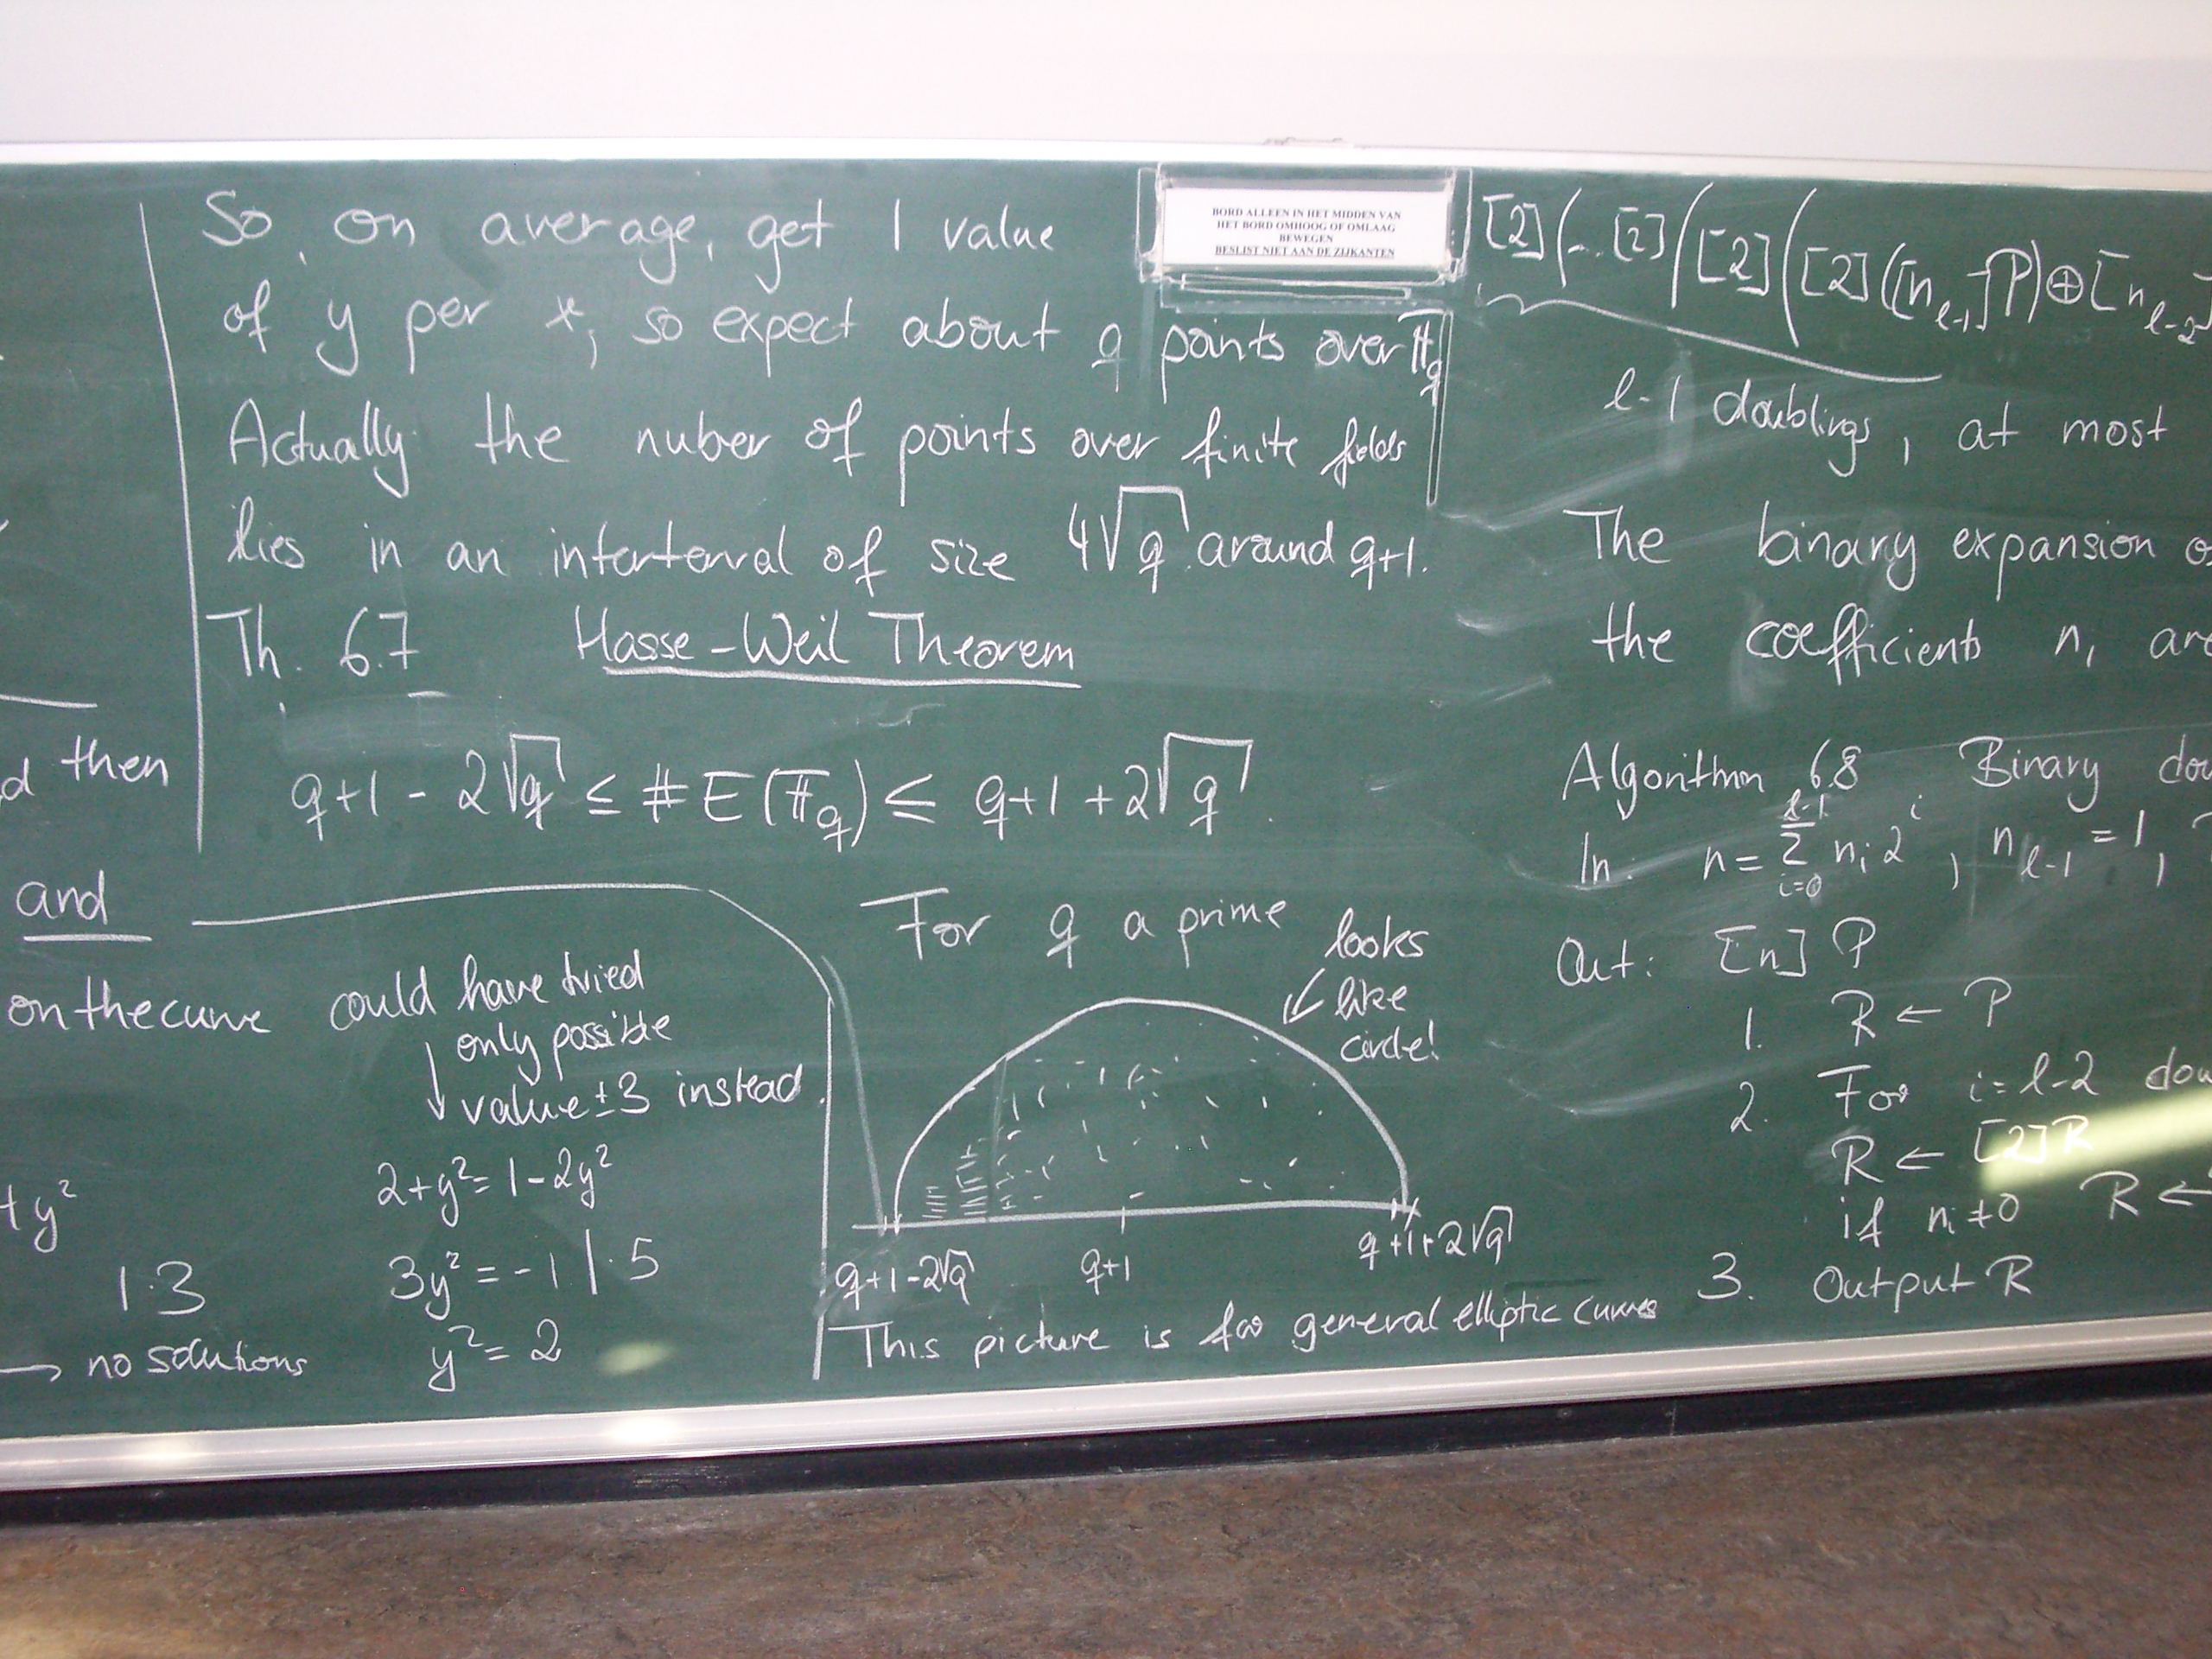 So, on average, get 1 value
of y per x, so expect about q points over 𝔽_q
Actually the nuber of points over finite fields
lies in an interterval of size 4√q around q+1.
Th. 6.7 Hasse-Weil Theorem
q+1 - 2√q ≤ #E(𝔽_q) ≤ q+1 + 2√q.
then
and
on the curve
could have tried
only possible
value ±3 instead.
2+y² = 1-2y²
3y² = -1 | ·5
y² = 2
+y²
1·3
→ no solutions
For q a prime
looks
like
circle!
q+1-2√q q+1 q+1+2√q
This picture is for general elliptic curves
BORD ALLEEN IN HET MIDDEN VAN
HET BORD OMHOOG OF OMLAAG
BEWEGEN
BESLIST NIET AAN DE ZIJKANTEN
[2](...[2]([2]([2]([n_{l-1}]P)⊕[n_{l-2}]
l-1 doublings, at most
The binary expansion
the coefficients n_i
Algorithm 6.8 Binary
In: n = Σ_{i=0}^{l-1} n_i 2^i, n_{l-1} = 1,
Out: [n]P
1. R ← P
2. For i = l-2
R ← [2]R
if n_i ≠ 0 R ←
3. Output R